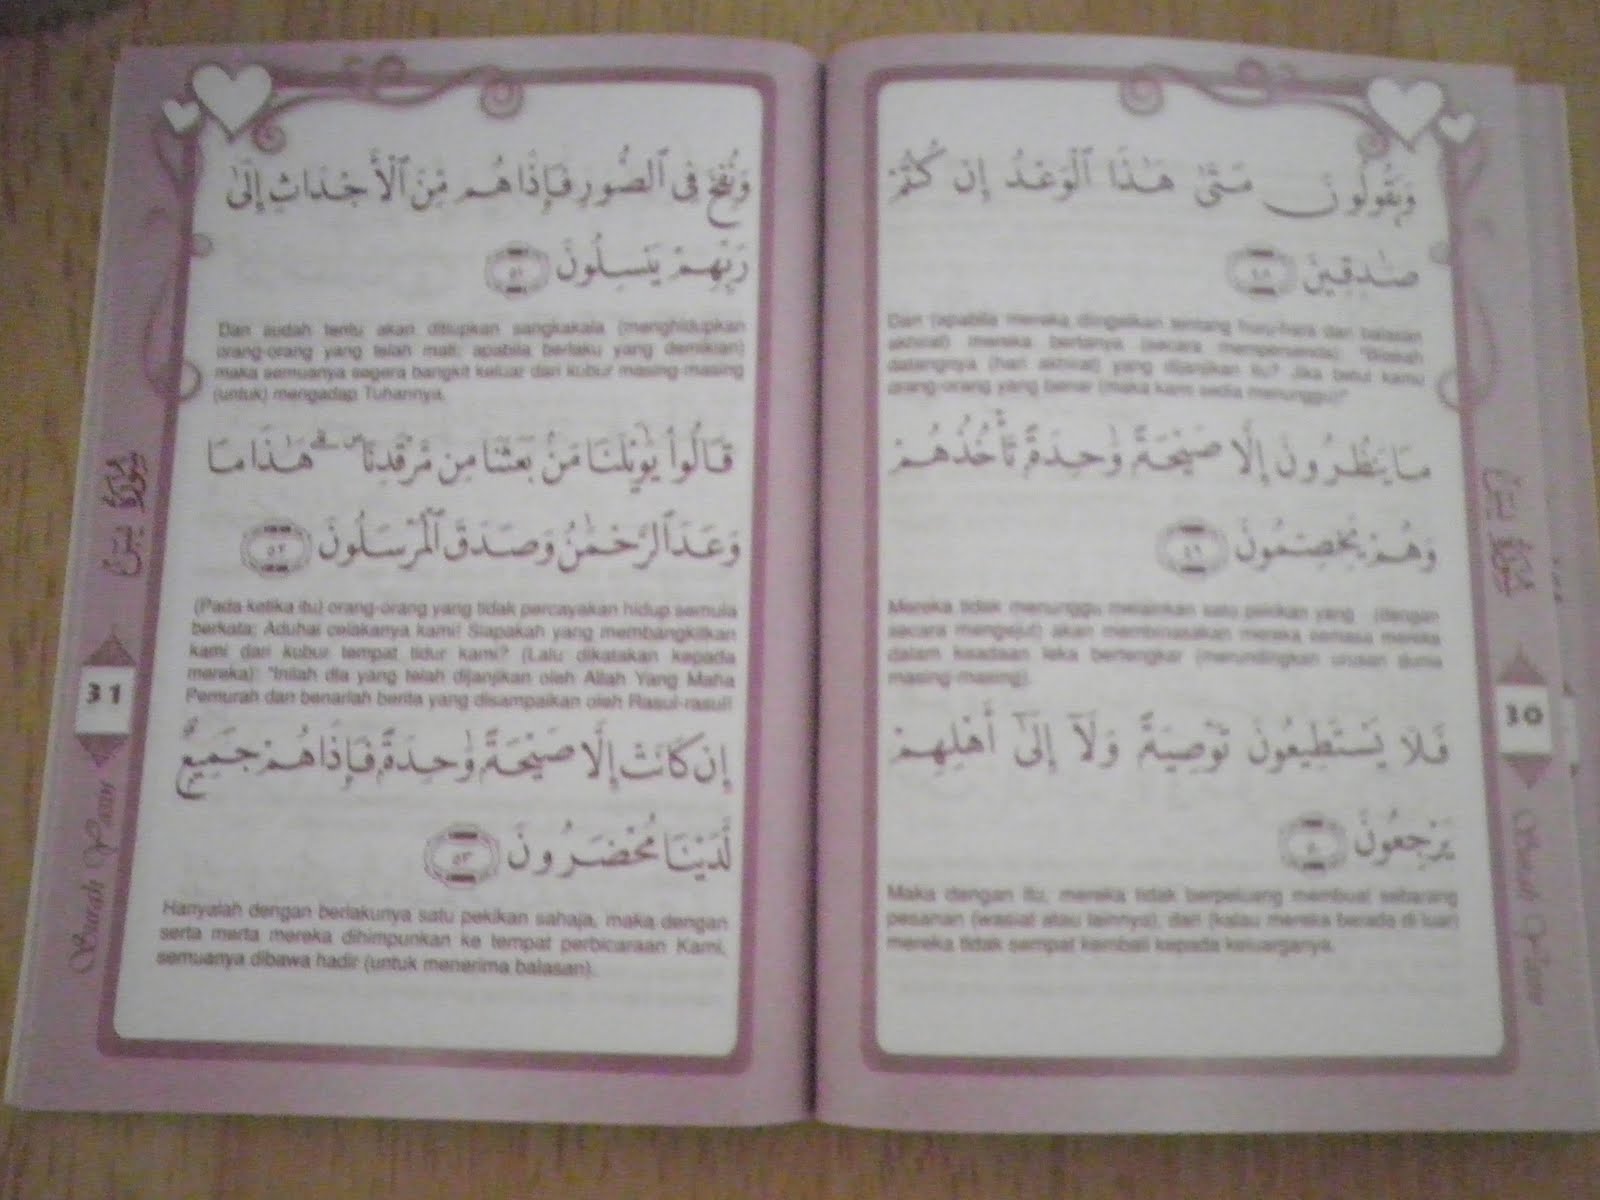 وَيَقُولُونَ مَتَىٰ هَٰذَا ٱلْوَعْدُ إِن كُنتُمْ
صَٰدِقِينَ ٤٨
Dan (apabila mereka diingatkan tentang huru-hara dan balasan
akhirat) mereka bertanya (secara mempersenda): "Bilakah
datangnya (hari akhirat) yang dijanjikan itu? Jika betul kamu
orang-orang yang benar (maka kami sedia menunggu)!"
مَا يَنظُرُونَ إِلَّا صَيْحَةً وَٰحِدَةً تَأْخُذُهُمْ
وَهُمْ يَخِصِّمُونَ ٤٩
Mereka tidak menunggu melainkan satu pekikan yang (dengan
secara mengejut) akan membinasakan mereka semasa mereka
dalam keadaan leka bertengkar (merundingkan urusan dunia
masing-masing).
فَلَا يَسْتَطِيعُونَ تَوْصِيَةً وَلَآ إِلَىٰٓ أَهْلِهِمْ
يَرْجِعُونَ ٥٠
Maka dengan itu, mereka tidak berpeluang membuat sebarang
pesanan (wasiat atau lainnya), dan (kalau mereka berada di luar)
mereka tidak sempat kembali kepada keluarganya.
سورة يس
30
Surah Yasin
وَنُفِخَ فِى ٱلصُّورِ فَإِذَا هُم مِّنَ ٱلْأَجْدَاثِ إِلَىٰ
رَبِّهِمْ يَنسِلُونَ ٥١
Dan sudah tentu akan ditiupkan sangkakala (menghidupkan
orang-orang yang telah mati; apabila berlaku yang demikian)
maka semuanya segera bangkit keluar dari kubur masing-masing
(untuk) mengadap Tuhannya.
قَالُوا۟ يَٰوَيْلَنَا مَنۢ بَعَثَنَا مِن مَّرْقَدِنَا ۜ ۗ هَٰذَا مَا
وَعَدَ ٱلرَّحْمَٰنُ وَصَدَقَ ٱلْمُرْسَلُونَ ٥٢
(Pada ketika itu) orang-orang yang tidak percayakan hidup semula
berkata: Aduhai celakanya kami! Siapakah yang membangkitkan
kami dari kubur tempat tidur kami? (Lalu dikatakan kepada
mereka): "Inilah dia yang telah dijanjikan oleh Allah Yang Maha
Pemurah dan benarlah berita yang disampaikan oleh Rasul-rasul!
إِن كَانَتْ إِلَّا صَيْحَةً وَٰحِدَةً فَإِذَا هُمْ جَمِيعٌ
لَّدَيْنَا مُحْضَرُونَ ٥٣
Hanyalah dengan berlakunya satu pekikan sahaja, maka dengan
serta merta mereka dihimpunkan ke tempat perbicaraan Kami,
semuanya dibawa hadir (untuk menerima balasan).
سورة يس
31
Surah Yasin